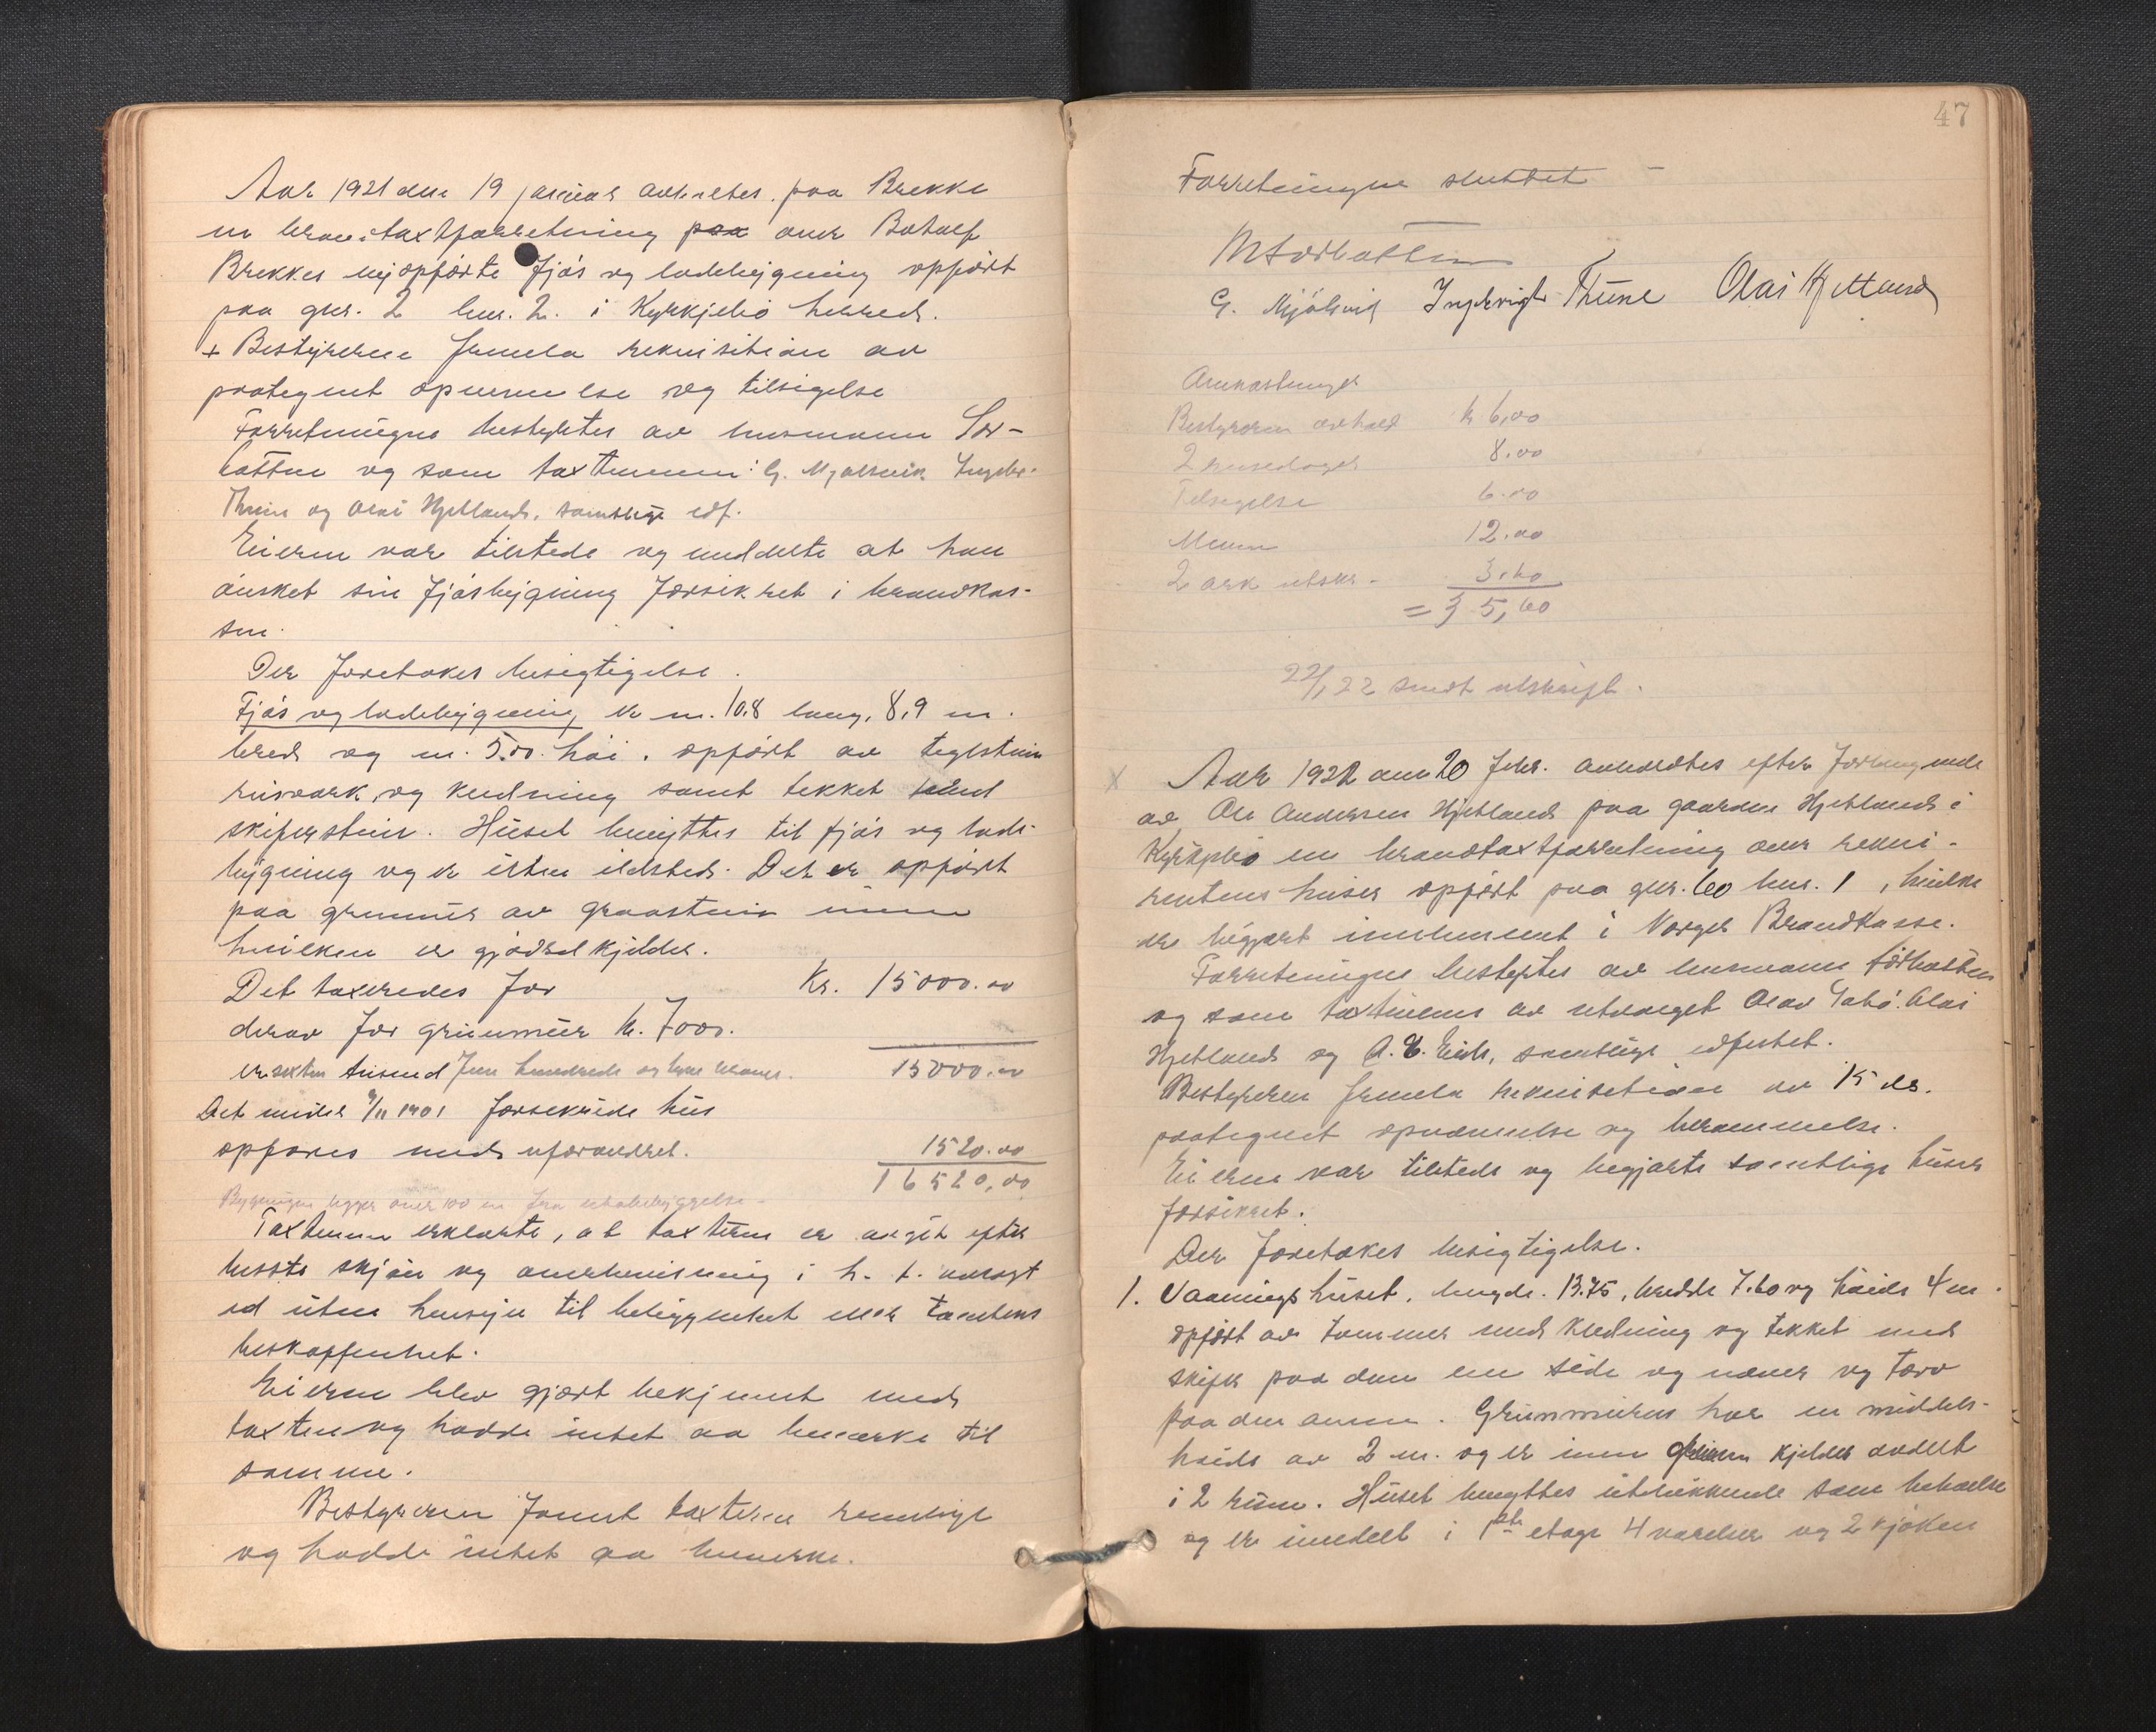 Aar 1921 den 19 januar avholtes paa Brekke
en brandtaxtforretning paa over Botolf
Brekkes nyopførte fjøs og ladebygning opført
paa gnr. 2 bnr. 2. i Kyrkjebø herred.
+ Bestyreren fremla rekvisition av
paategnet opnevnelse og tilsigelse
Forretningen bestyrtes av lensmann Sør-
botten og som taxtmenn: G. Mjølsvik Ingebr.
Thune og Olai Hjetland, samtlige edf.
Eieren var tilstede og meddelte at han
ønsket sin fjøsbygning forsikret i brandkas-
sen.
Der foretokes besigtigelse.
Fjøs og ladebygning er m. 10,8 lang, 8,9 m.
bred og m. 5.00. høi. opført av teglstein
reisverk og kledning samt tekket med
skiferstein. Huset benyttes til fjøs og lade-
bygning og er uten ildsted. Det er opført
paa grunmur av graastein innen
hvilken er gjødselkjelder.
Det taxeredes for Kr. 15000.00
derav for grunmur kr. 7000.
er sexten tusend fem hundrede og tyve kroner. 15000.00
Det under 9/11 1901 forsekrede hus
opføres med uforandret. 1520.00
16520,00
Bygningen ligger over 100 m fra nabobebyggelse.
Taxtmenn erklærte, at taxten er avgit efter
bedste skjøn og overbevisning i h. t. avlagt
ed uten hensyn til beliggenhet eller tomtens
beskaffenhet.
Eieren blev gjort bekjennt med
taxten og hadde intet aa bemerke til
samme.
Bestyreren fannt taxten rimelige
og hadde intet aa bemerke.
47
Forretningen sluttet
M Sørbotten
G. Mjölsvik Ingebrigt Thune Olai Hjetland
Omkostninger
Bestyreren avhold k 6,00
2 reisedager 8.00
Tilsigelse 6.00
Menn 12.00
2 ark utskr. 3.60
= 35,60
22/1 22 sendt utskrift.
x Aar 1922 den 20 febr. avholdtes efter forlangende
av Ole Andersen Hjetland paa gaarden Hjetland i
Kyrkjebø en brandtaxtforretning over rekvi-
rentens huser opført paa gnr. 60 bnr. 1, hvilke
er begjært innlemmet i Norges Brandkasse.
Forretningen bestyrtes av lensmann Sørbotten
og som taxtmenn av utvalget Olav Tabø. Olai
Hjetland og A. E. Eide, samtlige edfestet.
Bestyreren fremla rekvisition av 15 ds.
paategnet opnevnelse og berammelse.
Eieren var tilstede og begjærte samtlige huser
forsikret.
Der foretokes besigtigelse.
1. Vaaningshuset, lengde. 13.75, bredde 7.60 og høide 4 m.
opført av tømmer med kledning og tekket med
skifer paa den ene side og never og torv
paa den annen. Grunmuren har en middels-
høide av 2 m. og er innen kjelder avdelt
i 2 rum. Huset benyttes utelukkende som beboelse
og er inndelt i 1ste etage 4 værelser og 2 kjøken